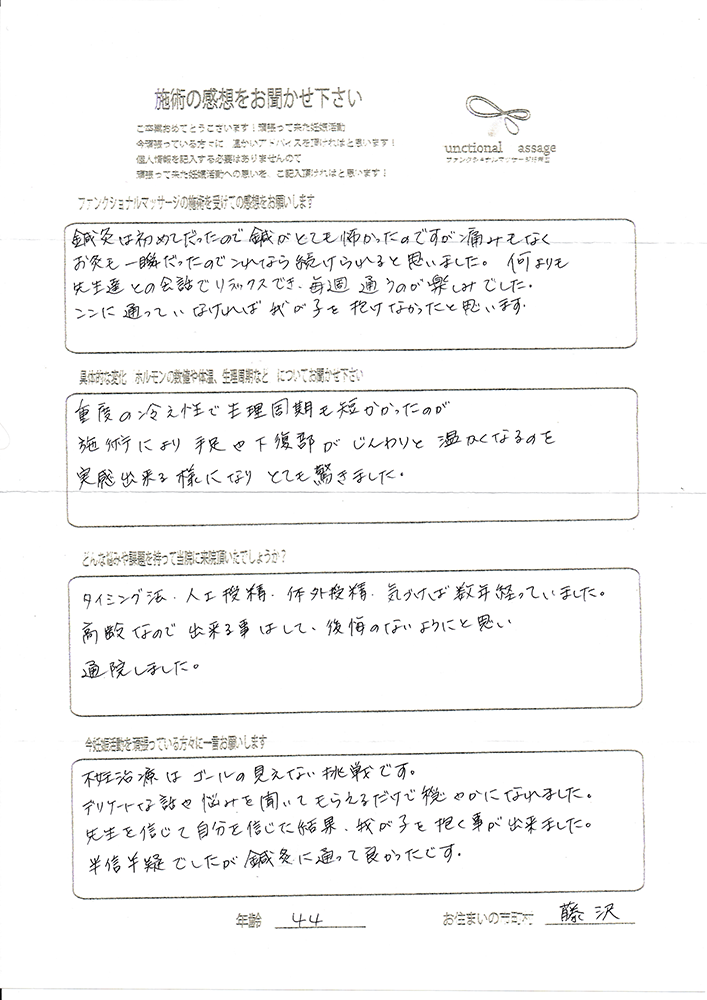 施術の感想をお聞かせ下さい
ご卒業おめでとうございます！頑張って来た妊娠活動
今頑張っている方々に 温かいアドバイスを頂ければと思います！
個人情報を記入する必要はありませんので
頑張って来た妊娠活動への思いを、ご記入頂ければと思います！
unctional assage
ファンクショナルマッサージ治療室
ファンクショナルマッサージの施術を受けての感想をお願いします
鍼灸は初めてだったので鍼がとても怖かったのですが痛みもなく
お灸も一瞬だったのでこれなら続けられると思いました。何よりも
先生達との会話でリラックスでき、毎週通うのが楽しみでした。
ここに通っていなければ我が子を抱けなかったと思います。
具体的な変化 ホルモンの数値や体温、生理周期など についてお聞かせ下さい
重度の冷え性で生理周期も短かかったのが
施術により手足や下復部がじんわりと温かくなるのを
実感出来る様になりとても驚きました。
どんな悩みや課題を持って当院に来院頂いたでしょうか？
タイミング法、人工授精、体外授精、気づけば数年経っていました。
高齢なので出来る事はして、後悔のないようにと思い
通院しました。
今妊娠活動を頑張っている方々に一言お願いします
不妊治療はゴールの見えない挑戦です。
デリケートな話や悩みを聞いてもらえるだけで穏やかになれました。
先生を信じて自分を信じた結果、我が子を抱く事が出来ました。
半信半疑でしたが鍼灸に通って良かったです。
年齢 44 お住まいの市町村 藤沢